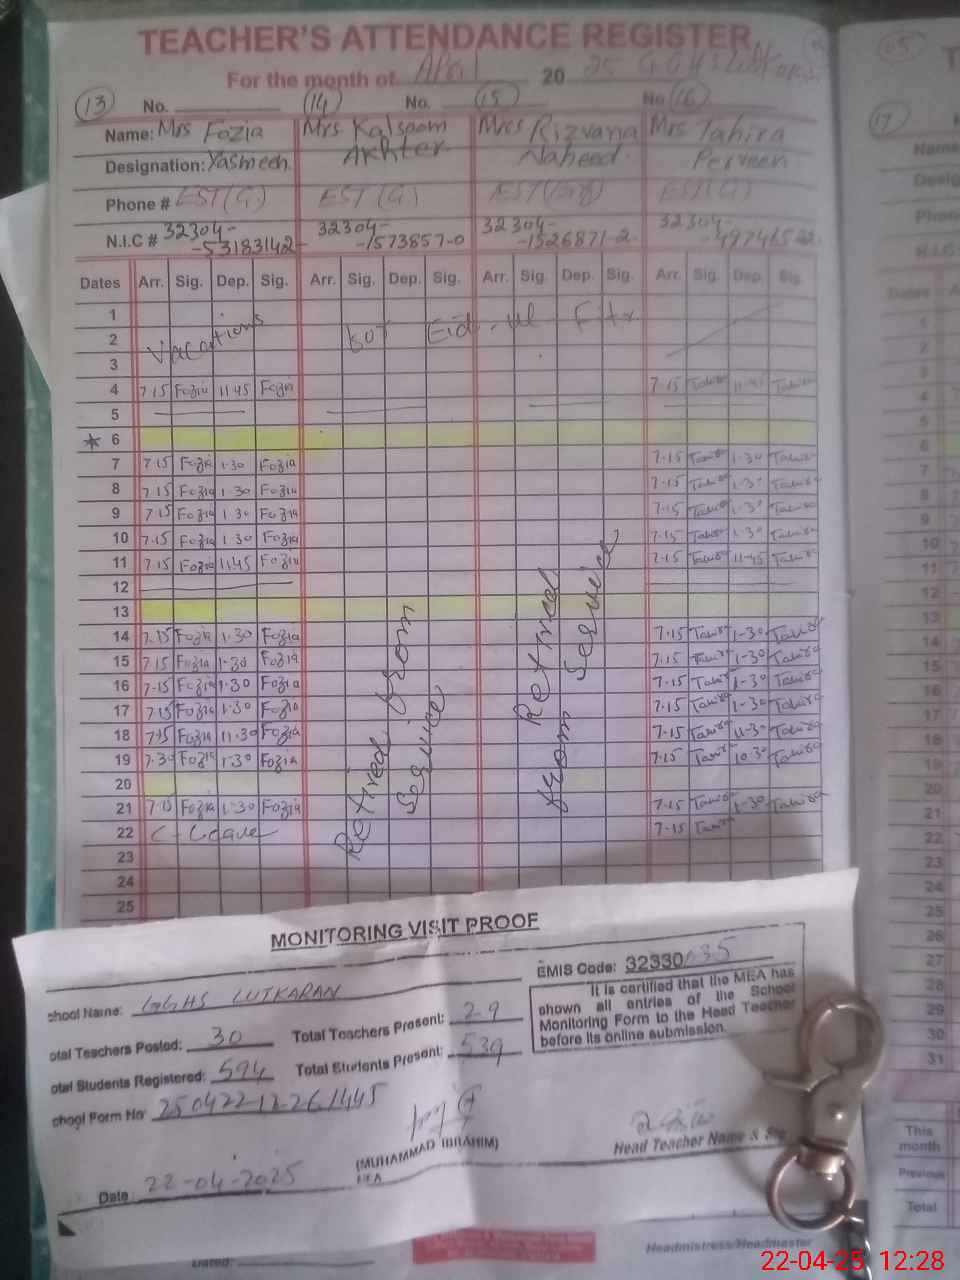 TEACHER'S ATTENDANCE REGISTER
For the month of April 20 25 GGHS Lutkaran
13 No. 14 No. 15 No 16
Name: Mrs Fozia Mrs Kalsoom Mrs Rizvana Mrs Tahira
Designation: Yasmeen Akhter Naheed Perveen
Phone # EST(G) EST(G) EST(Eng) EST(G)
N.I.C # 32304- 32304- 32304- 32304-
-5318314 2- -1573857-0 -1526871-2
Dates Arr. Sig. Dep. Sig. Arr. Sig. Dep. Sig. Arr. Sig. Dep. Sig. Arr. Sig. Dep. Sig.
1
2 Vacations for Eid-ul Fitr
3
4 7.15 Fozia 11.45 Fozia 7.15 Tahira 11.45 Tahira
5
* 6
7 7.15 Fozia 1-30 Fozia 7.15 Tahira 1-30 Tahira
8 7.15 Fozia 1-30 Fozia 7-15 Tahira 1-30 Tahira
9 7.15 Fozia 1-30 Fozia 7-15 Tahira 1-30 Tahira
10 7.15 Fozia 1-30 Fozia 7.15 Tahira 1.30 Tahira
11 7.15 Fozia 11.45 Fozia 7.15 Tahira 11-45 Tahira
12
13
14 7.15 Fozia 1.30 Fozia 7.15 Tahira 1-30 Tahira
15 7.15 Fozia 1-30 Fozia 7.15 Tahira 1-30 Tahira
16 7-15 Fozia 1-30 Fozia 7.15 Tahira 1-30 Tahira
17 7.15 Fozia 1-30 Fozia 7.15 Tahira 1-30 Tahira
18 7.15 Fozia 11-30 Fozia 7.15 Tahira 11-30 Tahira
19 7.30 Fozia 1-30 Fozia 7.15 Tahira 10.30 Tahira
20
21 7.15 Fozia 1-30 Fozia 7.15 Tahira 1-30 Tahira
22 C-Leave 7-15 Tahira
23
24
25
Retired from
Service
Retired
from Service
MONITORING VISIT PROOF
EMIS Code: 32330
chool Name: GGHS LUTKARAN
otal Teachers Posted: 30 Total Teachers Present: 29
otal Students Registered: 594 Total Students Present: 539
chool Form No 250422-12261445
It is certified that the MEA has
shown all entries of the School
Monitoring Form to the Head Teacher
before its online submission.
(MUHAMMAD IBRAHIM)
MEA
Head Teacher Name & Sig
Date: 22-04-2025
Dated:
Headmistress/Headmaster
05
T
17
Name
Desig
Phone
N.I.C
Dates
1
2
3
4
5
6
7
8
9
10
11
12
13
14
15
16
17
18
19
20
21
22
23
24
25
26
27
28
29
30
31
This
month
Previous
Total
22-04-25 12:28